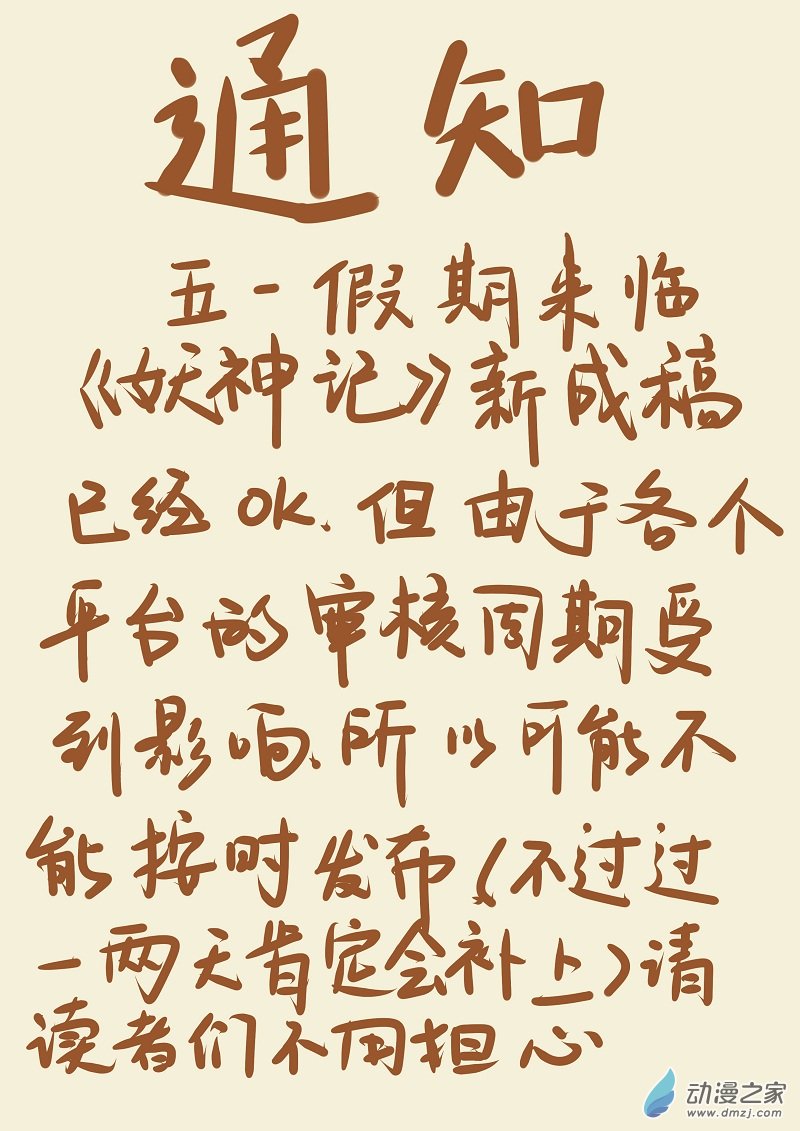 通知
五一假期来临
《妖神记》新成稿
已经OK.但由于各个
平台的审核周期受
到影响、所以可能不
能按时发布(不过过
一两天肯定会补上)请
读者们不用担心
动漫之家
www.dmzj.com